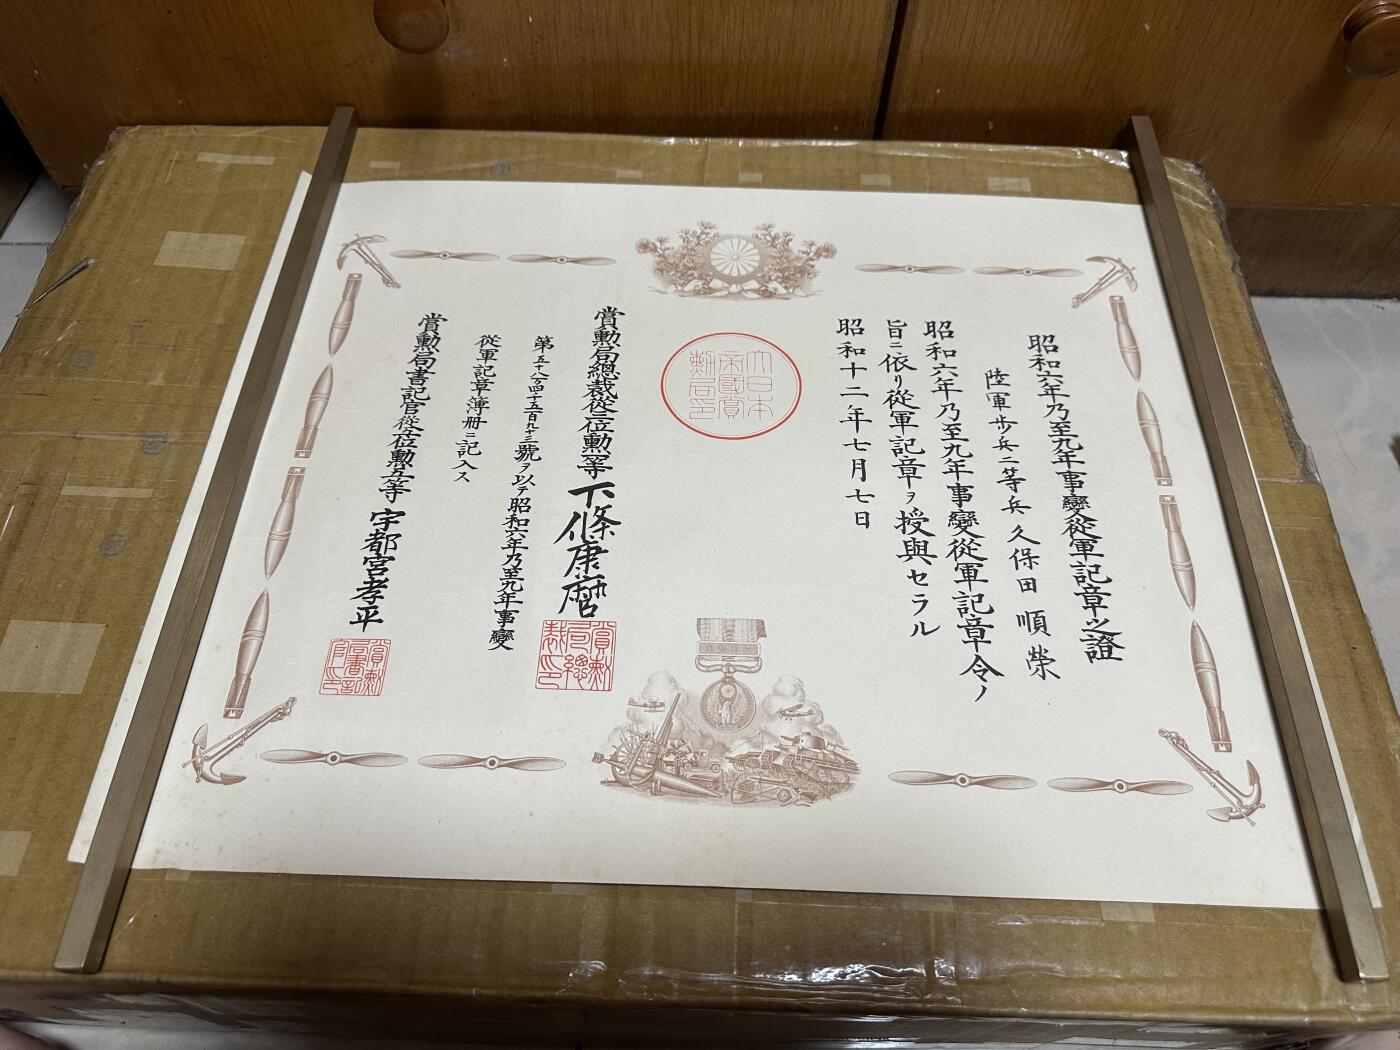 昭和六年乃至九年事變從軍記章之證
陸軍歩兵二等兵 久保田順榮
昭和六年乃至九年事變從軍記章令ノ
旨ニ依リ從軍記章ヲ授與セラル
昭和十二年七月七日
大日本
帝國賞
勲局印
賞勲局總裁從三位勲一等 下條康麿
賞勲
局總
裁印
第五十八万四千五百九十三號ヲ以テ昭和六年乃至九年事變
從軍記章簿册ニ記入ス
賞勲局書記官從五位勲五等 宇都宮孝平
賞勲
局書記
官印